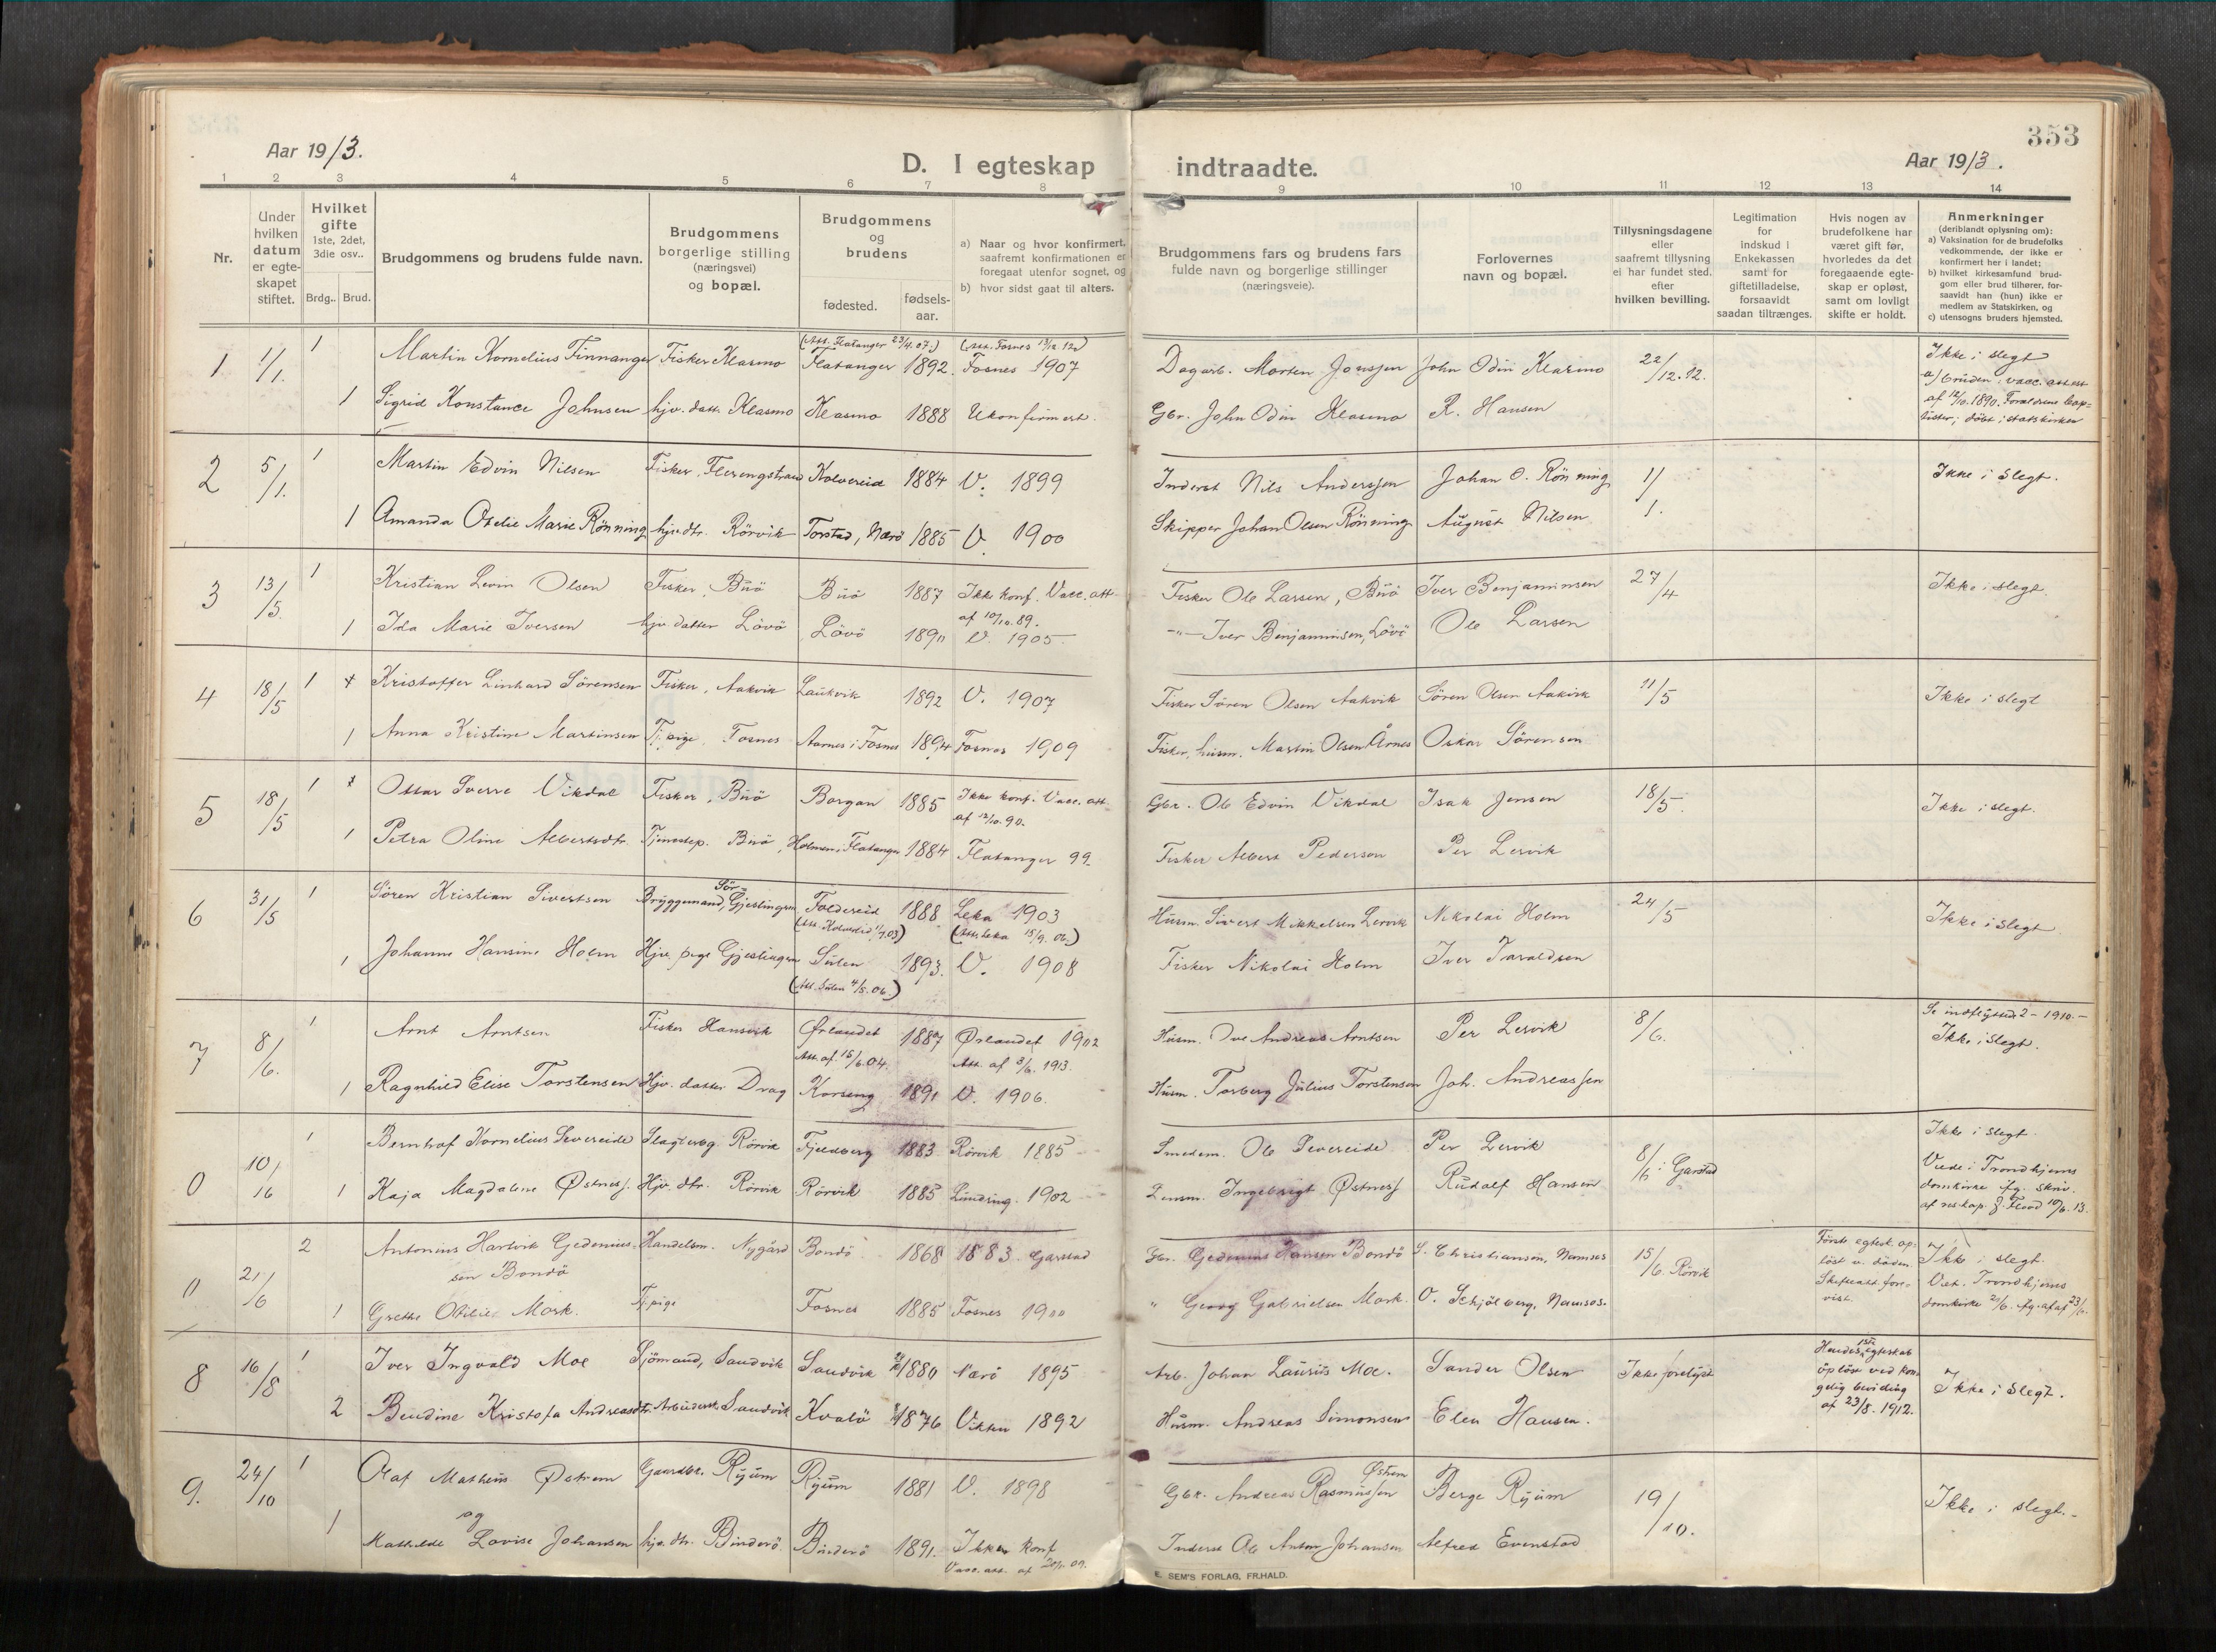 353
Aar 1913.
D. I egteskap indtraadte.
Aar 1913.
1 2 3 4 5 6 7 8 9 10 11 12 13 14
Nr.
Under hvilken datum er egte-skapet stiftet.
Hvilket gifte 1ste, 2det, 3die osv..
Brdg.. Brud.
Brudgommens og brudens fulde navn.
Brudgommens borgerlige stilling (næringsvei) og bopæl.
Brudgommens og brudens
fødested. fødsels-aar.
a) Naar og hvor konfirmert, saafremt konfirmationen er foregaat utenfor sognet, og
b) hvor sidst gaat til alters.
Brudgommens fars og brudens fars fulde navn og borgerlige stillinger (næringsveie).
Forlovernes navn og bopæl.
Tillysningsdagene eller saafremt tillysning ei har fundet sted, efter hvilken bevilling.
Legitimation for indskud i Enkekassen samt for giftetilladelse, forsaavidt saadan tiltrænges.
Hvis nogen av brudefolkene har været gift før, hvorledes da det foregaaende egte-skap er opløst, samt om lovligt skifte er holdt.
Anmerkninger (deriblandt oplysning om):
a) Vaksination for de brudefolks vedkommende, der ikke er konfirmert her i landet;
b) hvilket kirkesamfund brud-gom eller brud tilhører, for-saavidt han (hun) ikke er medlem av Statskirken, og
c) utensogns bruders hjemsted.
1 1/1. 1 Martin Kornelius Finnanger Fisker Klasmo (Att. Flatanger 23/4.07.) Flatanger 1892. (Att. Fosnes 13/12.12) Fosnes 1907 Dagarb. Morten Jonssen John Odin Klasmo 22/12.12. Ikke i slegt
a) bruden: vacc. attest af 12/10.1890. Forældrene bap=tister; döbt i statskirken
1 Sigrid Konstance Johnsen hjv. datt. Klasmo Klasmo 1888 Ukonfirmert. Gbr. John Odin Klasmo R. Hansen
2 5/1. 1 Martin Edvin Nilsen Fisker, Flerengstrand Kolvereid 1884 V. 1899 Inderst Nils Anderssen Johan O. Rönning 1/1. Ikke i slegt.
1 Amanda Otelie Marie Rönning hjv. dtr. Rörvik Torstad, Nærö 1885 V. 1900 Skipper Johan Olsen Rönning August Nilsen
3 13/5. 1 Kristian Levin Olsen Fisker, Buö Buö 1887 Ikke konf. Vacc. att. af 10/10.89. Fisker Ole Larsen, Buö Iver Benjaminsen 27/4 Ikke i slegt.
1 Ida Marie Iversen hjv. datter Lövö Lövö 1890 V. 1905 -"- Iver Benjaminsen, Lövö Ole Larsen
4 18/5 1 Kristoffer Linhard Sörensen Fisker, Aakvik Laukvik 1892 V. 1907 Fisker Sören Olsen Aakvik Sören Olsen Aakvik 11/5 Ikke i slegt
1 Anna Kristine Martinsen Tj. pige, Fosnes Aarnes i Fosnes 1894 Fosnes 1909 Fisker, husm. Martin Olsen Årnes Oskar Sörensen
5 18/5 1 Ottar Sverre Vikdal Fisker, Buö Borgan 1885 Ikke konf. Vacc. att. af 12/10.90. Gbr. Ole Edvin Vikdal Isak Jensen 18/5. Ikke i slegt.
1 Petra Oline Albertsdtr. Tjenestep. Buö Holmen, Flatanger 1884 Flatanger 99 Fisker Albert Pedersen Per Lervik
6 31/5 1 Sören Kristian Sivertsen Bryggemand, Sör-Gjeslingen Foldereid 1888 (Att. Kolvereid 11/7.03) Leka 1903 (Att. Leka 15/9.06.) Husm. Sivert Mikkelsen Lervik Nikolai Holm 24/5 Ikke i slegt
1 Johanne Hansine Holm Hjv. pige Gjeslingen Sulen 1893. (Att. Sulen 4/5.06.) V. 1908 Fisker Nikolai Holm Iver Taraldsen
7 8/6. 1 Arnt Arntsen Fisker Hansvik Ørlandet 1887 Att. af. 15/6.04. Ørlandet 1902 Att. af 3/6. 1913. Husm. Ove Andreas Arntsen Per Lervik 8/6. Se indflyttede 2 - 1910.- Ikke i slegt.
1 Ragnhild Elise Torstensen Hjv. datter Drag Korseng 1891 V. 1906. Husm. Torberg Julius Torstensen Joh. Andreassen
0 10/6 1 Berntsaf Kornelius Severeide Rörvik Fjeldberg 1883 Rörvik 1885 Smedem. Ole Severeide Per Lervik 8/6 i Garstad Ikke i slegt.
Viede i Trondhjems domkirke fg. skriv. af res. kap. J. Flood 10/6.13.
1 Kaja Magdalene Østness. Hjv. dtr. Rörvik Rörvik 1885 1902 Lensm. Ingebrigt Østness Rudolf Hansen
0 21/6 2 Antonius Hartvik Gedeniussen Bondö Handelsm. Nygård Bondö 1868 1883 Garstad Gbr. Gedenius Hansen Bondö S. Christiansen, Namsos 15/6. Rörvik Förste egtesk. op-löst v. döden. Skifteatt. fore-vist. Ikke i slegt.
Viet. Trondhjems domkirke 21/6. fg. af 23/6.
1 Grethe Otilie Mörk. Tj. pige Fosnes 1885 Fosnes 1900 " Georg Gabrielsen Mörk. O. Schjölberg, Namsos.
8 16/8 1 Iver Ingvald Moe Sjömand, Sandvik Sandvik 1880 Nærö 1895 Arb. Johan Laurits Moe. Sander Olsen Ikke forelyst Hendes 1ste egteskab oplöst ved kon-gelig bevilling af 23/8. 1912. Ikke i slegt.
2 Bendine Kristofa Andreasdtr. Arbiderske Sandvik Kvalö 1876 Vikten 1892 Husm. Andreas Simonsen Elen Hansen.
9. 24/10 1 Olaf Matheus Østrem Gaardbr. Ryum Ryum 1881 V. 1898 Gbr. Andreas Rasmussen Østrem Berge Ryum 19/10. Ikke i slegt.
og
1 Mathilde Lovise Johansen hjv. dtr. Binderö. Binderö 1891. Ikke konf Vacc. att. af 20/11.09. Inderst Ole Anton Johansen Alfred Evenstad
E. SEM'S FORLAG, FR.HALD.